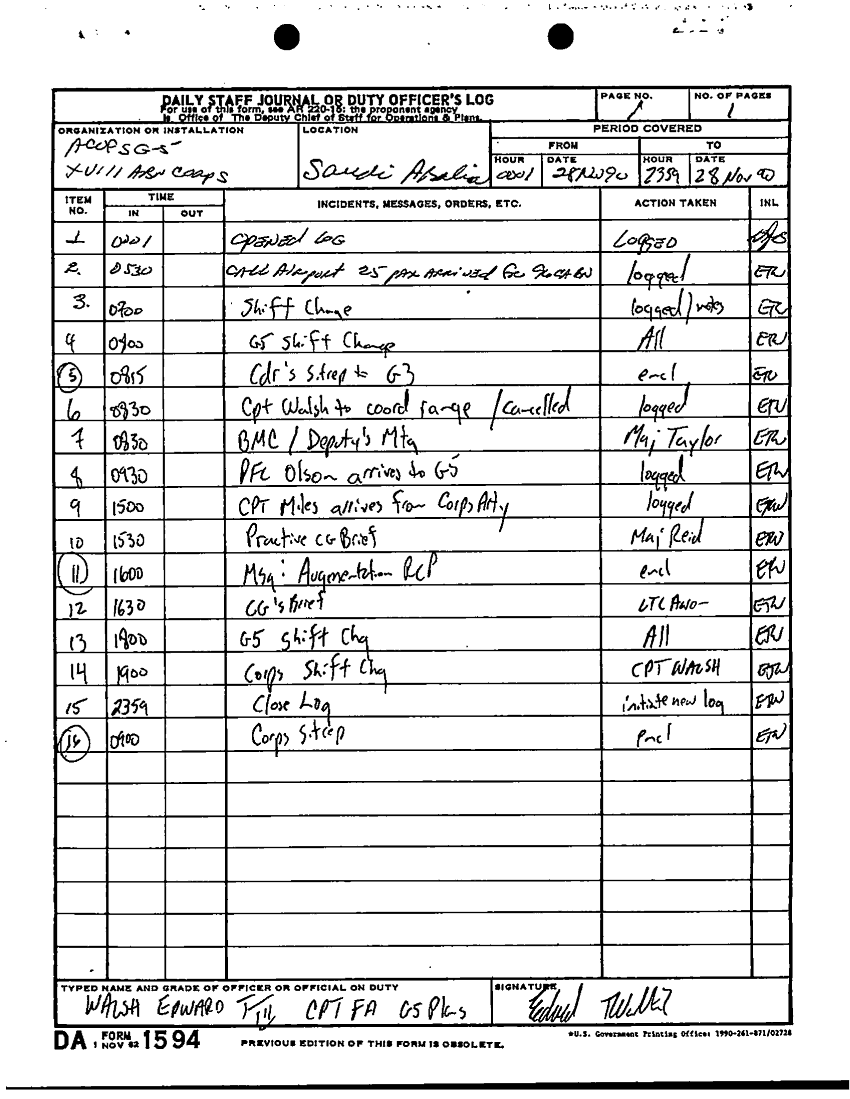 DAILY STAFF JOURNAL OR DUTY OFFICER'S LOG
For use of this form, see AR 220-15; the proponent agency
is Office of The Deputy Chief of Staff for Operations & Plans.
PAGE NO. 1
NO. OF PAGES 1
ORGANIZATION OR INSTALLATION
ACOFS G-5
XVIII ABN Corps
LOCATION
Saudi Arabia
PERIOD COVERED
FROM TO
HOUR DATE HOUR DATE
0001 28 Nov 90 2359 28 Nov 90
ITEM NO. TIME IN OUT INCIDENTS, MESSAGES, ORDERS, ETC. ACTION TAKEN INL
1 0001 OPENED LOG LOGGED
2. 0530 CALL Airport 25 pax ARRIVED for 96 CA BN logged ETW
3. 0700 Shift Change logged/notes ETW
4 0900 G5 Shift Change All ETW
5 0815 Cdr's Sitrep to G3 encl ETW
6 0830 Cpt Walsh to coord range / Cancelled logged ETW
7 0830 BMC / Deputy's Mtg Maj Taylor ETW
8 0930 PFC Olson arrives to G5 logged ETW
9 1500 CPT Miles arrives from Corps Arty logged ETW
10 1530 Practive CG Brief Maj Reid ETW
11 1600 Msg: Augmentation RCP encl ETW
12 1630 CG's Brief LTC ETW
13 1800 G5 Shift Chg All ETW
14 1900 Corps Shift Chg CPT WALSH ETW
15 2359 Close Log initiate new log ETW
16 0900 Corps Sitrep encl ETW
TYPED NAME AND GRADE OF OFFICER OR OFFICIAL ON DUTY
WALSH EDWARD T III CPT FA G5 Plans
SIGNATURE
DA FORM 1 NOV 62 1594
PREVIOUS EDITION OF THIS FORM IS OBSOLETE.
*U.S. Government Printing Office: 1990-261-871/02728